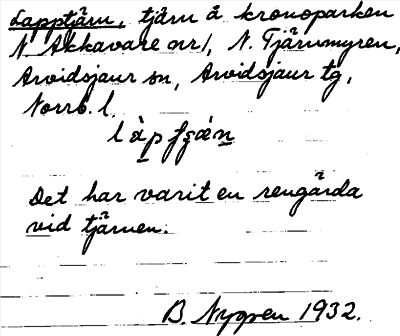 Lapptjärn, tjärn å kronoparken
N. Akkavare nr 1, N. Tjärnmyren,
Arvidsjaur sn, Arvidsjaur tg,
Norrb. l.
làpfʂæ̀n
Det har varit en rengärda
vid tjärnen.
B. Nygren 1932.